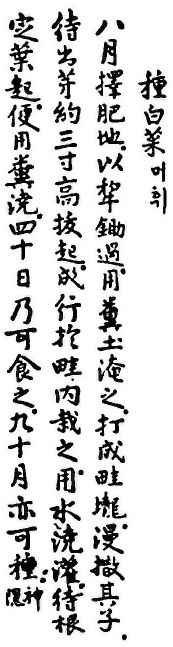 種白菜머휘
八月擇肥地。以犂鋤過。用糞土淹之。打成畦壠。漫撒其子。
待出芽約三寸高拔起。成行於畦內栽之。用水澆灌。待根
定葉起。便用糞澆。四十日乃可食之。九十月亦可種。神隱